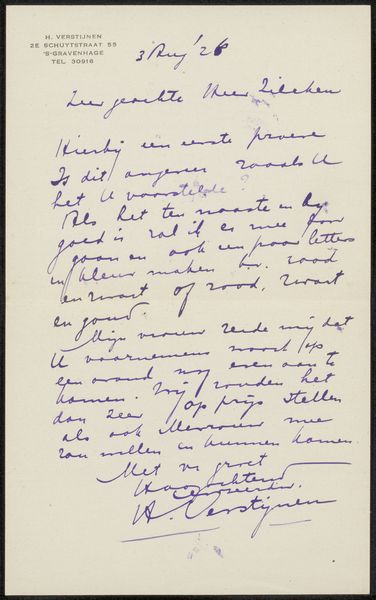 H. VERSTIJNEN
2E SCHUYTSTRAAT 55
'S-GRAVENHAGE
TEL 30916
3 Aug' 26
Zeer geachte Heer Zilcken
Hierbij een eerste proeve
Is dit ongeveer zooals U
het U voorstelde?
Als het ten naaste en bij
goed is zal ik er mee door
gaan en ook een paar letters
in kleur maken bv. rood
en zwart of rood, zwart
en goud.
Mijn vrouw zeide mij dat
U voornemens was op
een avond nog even aan te
komen. Wij zouden het
dan zeer op prijs stellen
als ook Mevrouw mee
zou willen en kunnen komen.
Met vr groet
Hoogachtend
H. Verstijnen